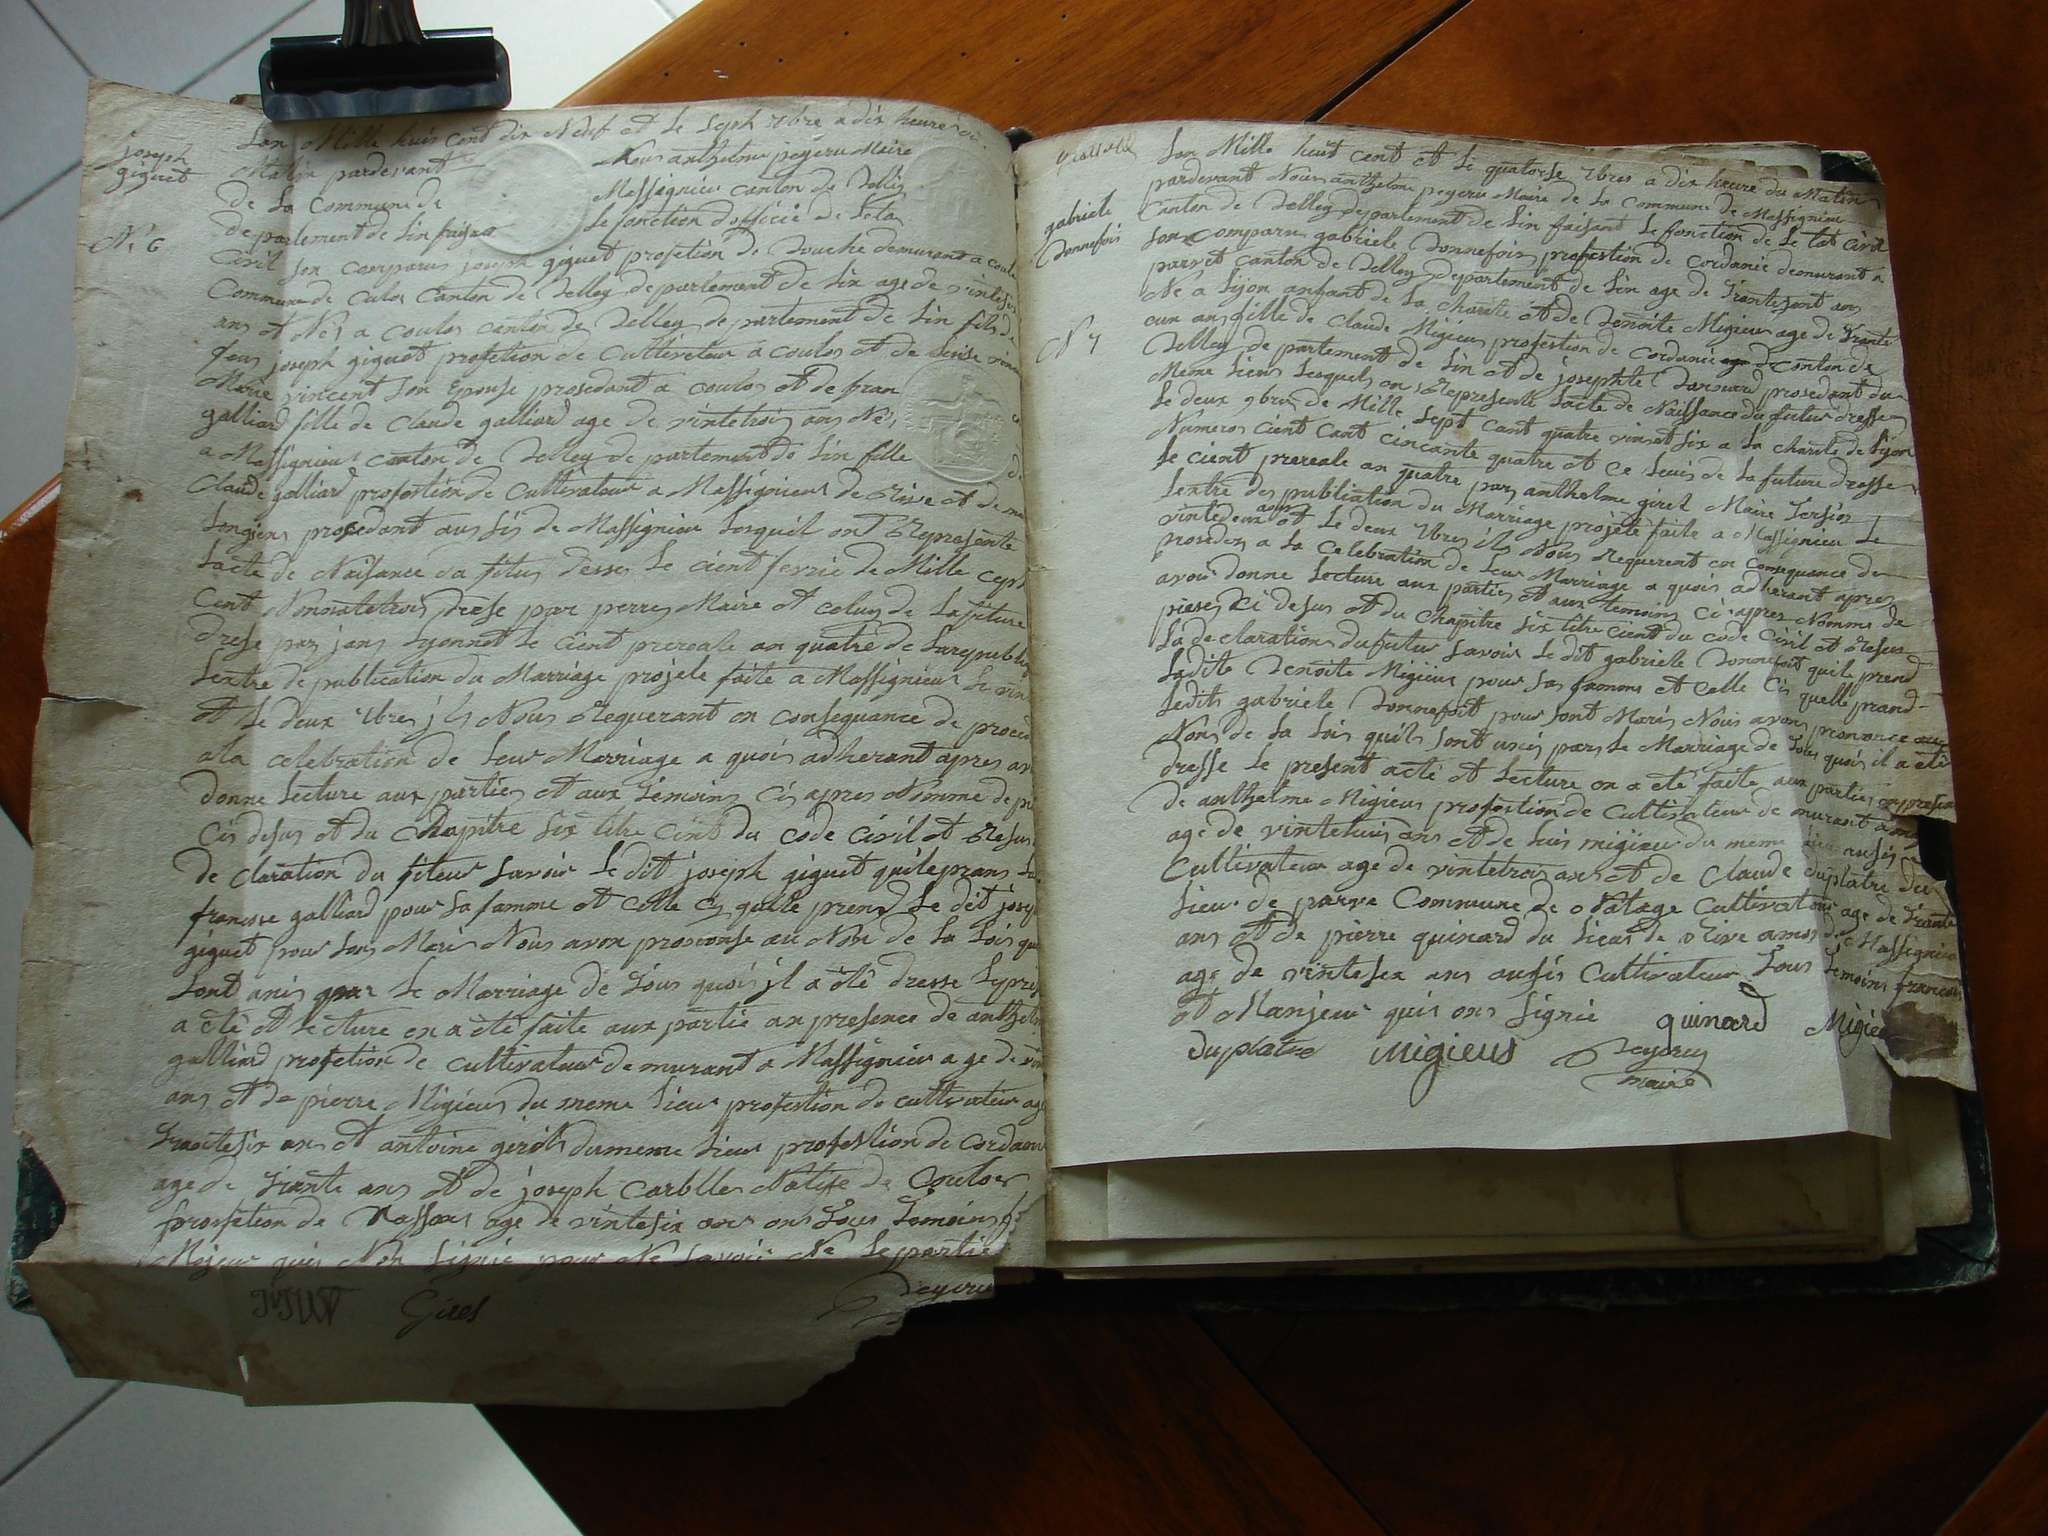 joseph
giguet
N. 6
Lan Mille huis cent dix Neuf et le Sept 7bre a dix heures
Matin pardevant Nous anthelme peyeru Maire
de La Commune de Massignieu canton de Belley
departement de Lin faisan le fonction dofficie de Leta
Civil son comparus joseph giguet profetion de demurant a coulo
Commune de culos Canton de Belley departement de Lin age de vintesis
ans et Nes a coulos canton de Belley departement de Lin fils de
feus joseph giguet profetion de cultiveteur a coulos et de
Marie vincent son Epouse prosedant a coulos et de fran
galliard fille de Claude galliard age de vintetrois ans Né
a Massignieu canton de Belley departement de Lin fille
Claude galliard profestion de Cultivateur a Massignieus de Rive et de
Longiens prosedant aussis de Massignieu Lesquil ont Represente
Lacte de Naisance da fitus dresse Le cient fevrié de Mille cept
Cent Nonnatetrois drese par perres Maire et celuy de La fiture
drese par jans Lyonnet le cient prereale an quatre de Larepubliq
Lextre de publication du Marriage projete faite a Massignieu Le vin
et Le deux 7bres jls Nous Requerant en consequance de proced
ala celebration de Leur Marriage a quois adherant apres av
donne Lecture aux parties et aux temoins cis apres Nomme de pi
Cis desus et du Chapitre Six titre Cint du code Civil et Resus
de claration du fiteur savoir Le dit joseph giguet quileprans La
francise galliard pour sa famme et celle cy quelle prend Le dit josep
giguet pour sons Maris Nous avon prononse au Non de La Lois qu
sont anis par Le Marriage de Sous quois jl a été dresse Lepris
a été et lecture en a été faite aux partie an presence de anthelm
galliard profetion de cultivateur demurant a Massignieu age de vin
ans et de pierre Migieus du meme Lieu profestion de cultivateur age
Trantesix ans et antoine girot dumeme Lieu profestion de cordan
age de trante ans et de joseph Carblle Natife de Couloz
professtion de Massons age de vintesix ans ons Sous temoins
Majeur quis Non signié pour Ne savoir Ne Lepartie
Girel
Peyeru
gabriele
Donnefois
N 7
Lan Mille huit cent et Le quatorse 7bres a dix heure du Matin
pardevant Nous anthelme peyeru Maire de La commune de Massignieu
Canton de Belley departement de Lin faisant Le fonction de Le tat Civil
Son comparu gabriele Donnefois profestion de Cordanié demurant a
parvet canton de Belley departement de Lin age de trantesint ans
Né a Lyon anfant de La charité et de Benoite Migieus age de trante
cun an fille de Claude Migieus profestion de cordanié de Canton de
Belley de partement de Lin et de josephte Bornard prosedant du
Meme Lieus Lesquels on Represente Lacte de Naissance du futur dresse
Le deux 9bres de Mille Sept cant quatre vinst six a La charite de Lyon
Numeros cient cant cincante quatre et ce Leuis de La future dresse
Le cient prereale an quatre par anthelme girel Maire
Lextre des publication du Marriage projete faite a Massignieu Le
vintedeux aout et Le deux 7bres ils Nous Requerent en Consequance de
proseder a La celebration de Leur Marriage a quois adherant apres
avoir donne Lecture aux parties et aux temoins ci apres Nomme de
pieses Ci desus et du Chapitre six titre cient du code Civil et Resus
La de claration du futur savoir Le dit gabriele Donnefoit quile prend
Ladite Benoite Migieus pour sas fammme et celle Cis quelle prand
Ledit gabriele Donnefoit pour sont Maris Nous avons prononce aux
Nons de La Lois quils sont unis pars Le Marriage de Sous quois il a été
dresse Le present acté et Lecture en a été faite aux parties enpresan
de anthelme Migieus profestion de Cultivateur de murant a
age de vintehuis ans et de Luis migieu du meme Lieu ausis
Cultivateur age de vintetrois ans et de Claude duplatre du
Lieu de parve Commune de Natage Cultivateur age de trante
ans et de pierre quinard du Lieus de Rive amon de Massignieu
age de vintesix ans ausis Cultivateur Sous temoins francois
et Manjeur quis ons Signie quinard Migieu
Duplatre Migieus Peyeru
maire